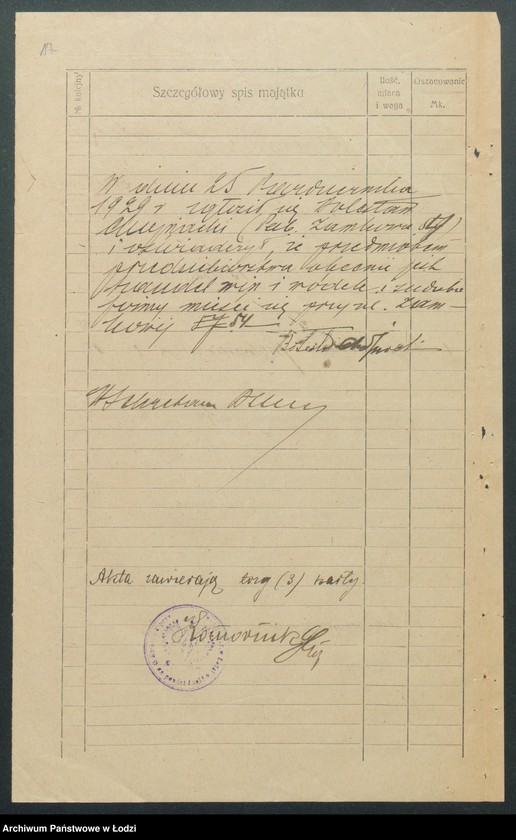 17
№ kolejny
Szczegółowy spis majątku
Ilość, miara i waga
Oszacowanie Mk.
W dniu 25 Października
1929 r zgłosił się Bolesław
Chojnacki (Pab. Zamkowa 54)
i oświadczył, że przedmiotem
przedsiębiorstwa obecnie jest
handel win i wódek i siedziba
firmy mieści się przy ul. Zam-
kowej 54
W Sekretarz
Akta zawierają trzy (3) karty.
Komornik
Archiwum Państwowe w Łodzi